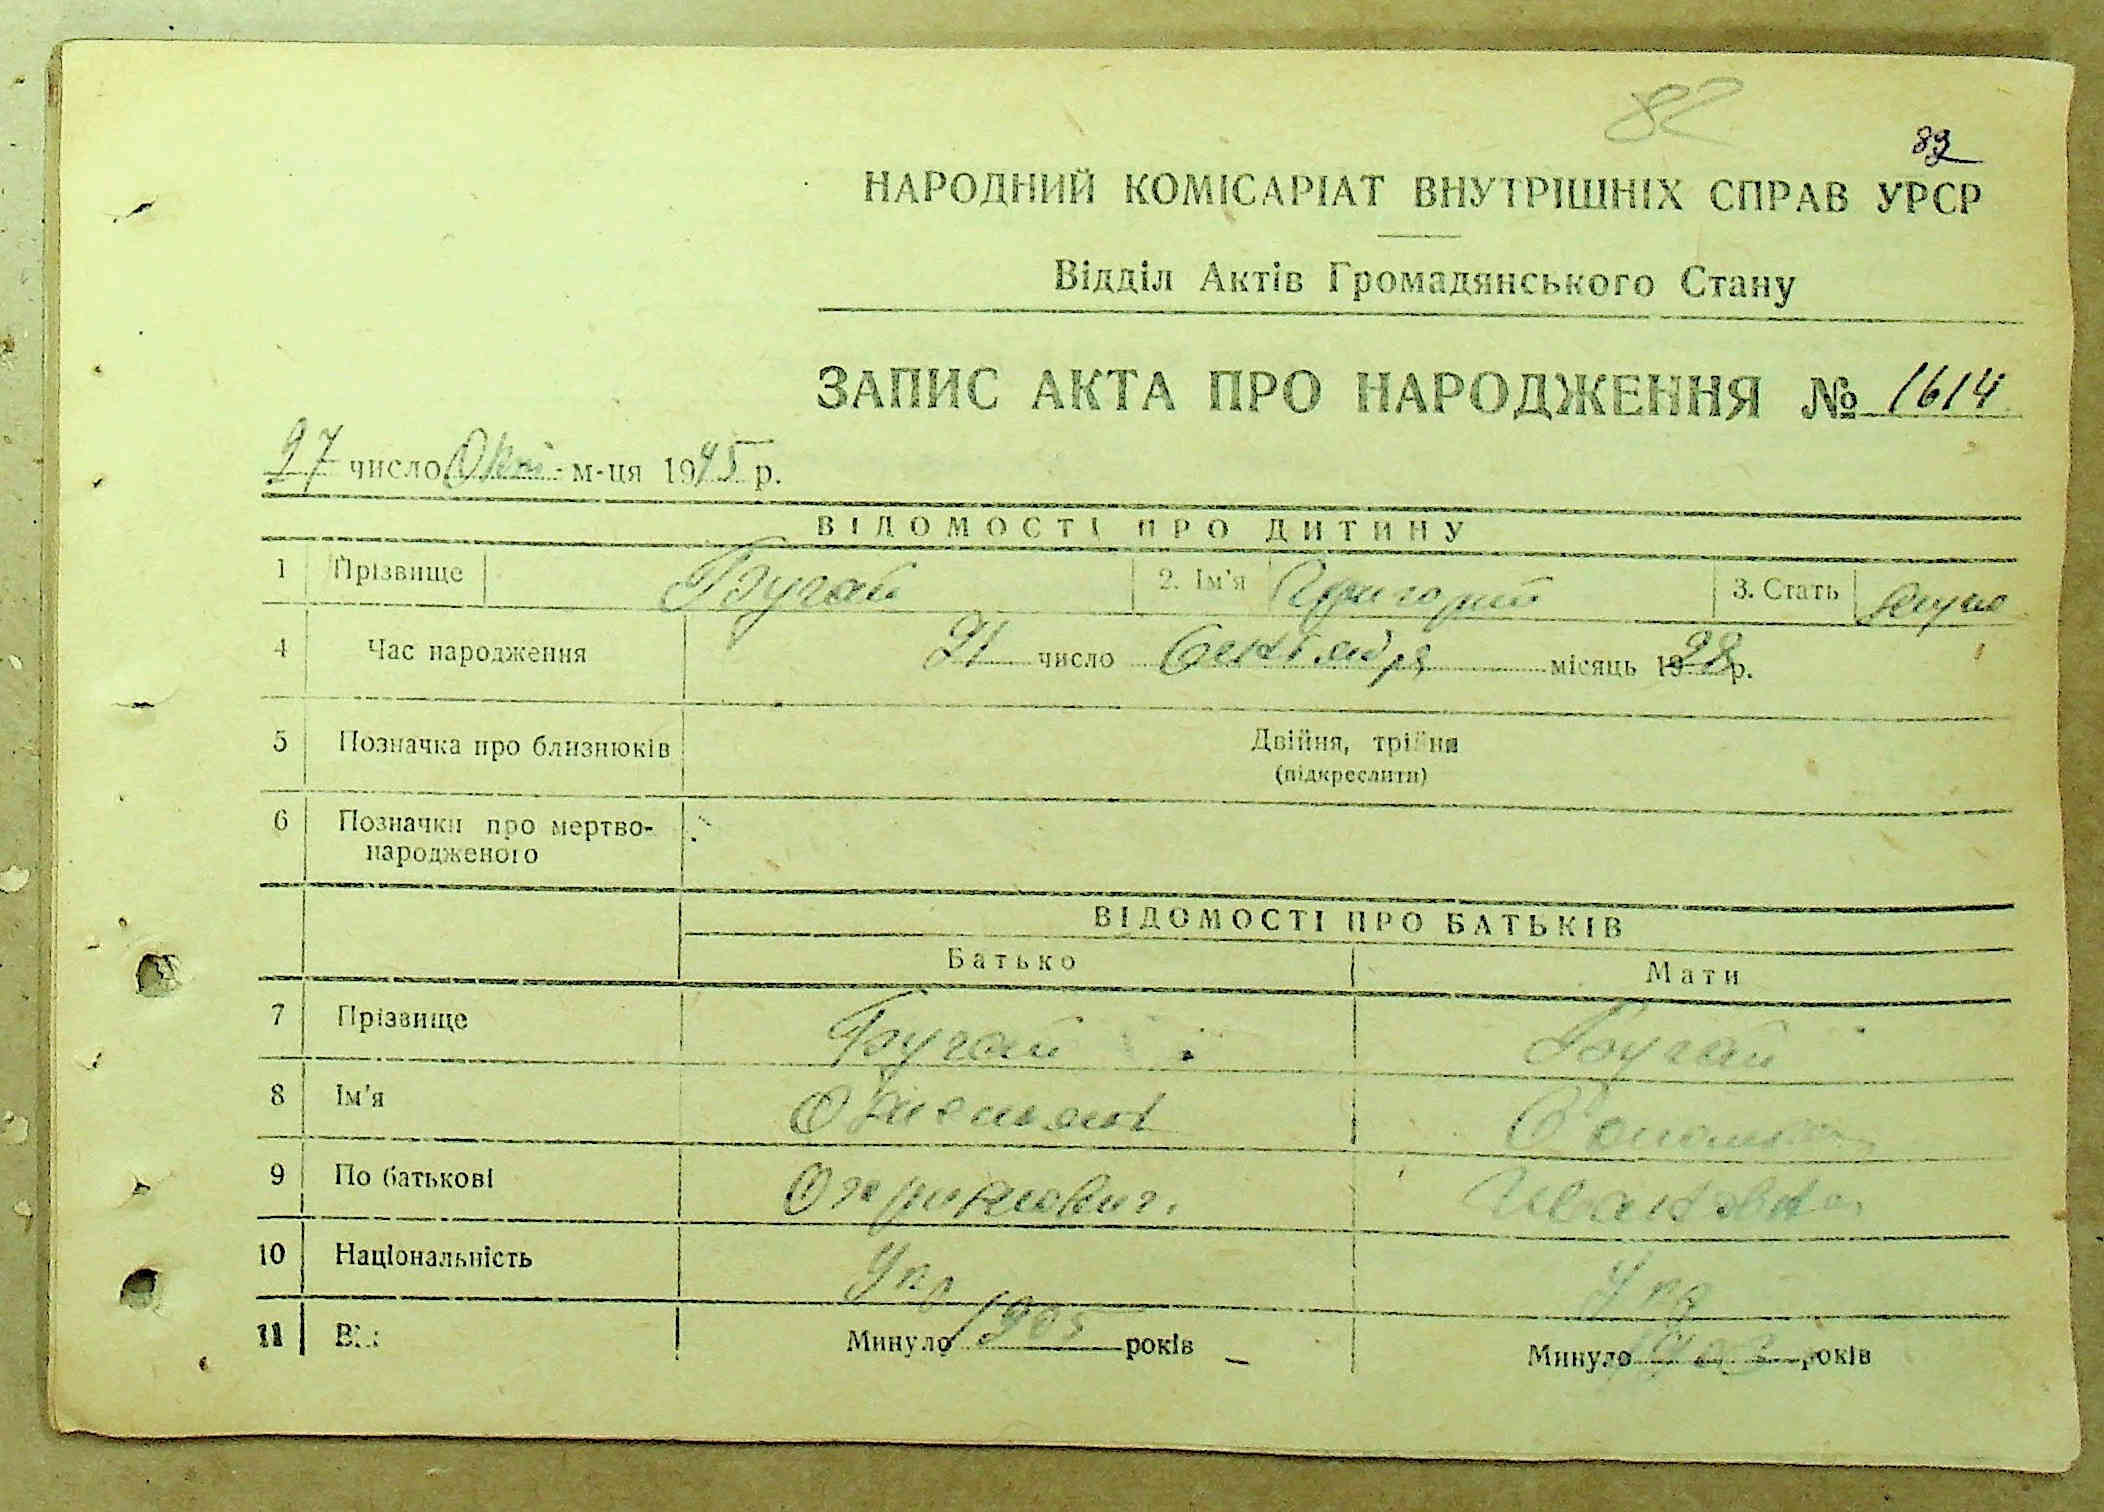 82
83
НАРОДНИЙ КОМІСАРІАТ ВНУТРІШНІХ СПРАВ УРСР
Відділ Актів Громадянського Стану
ЗАПИС АКТА ПРО НАРОДЖЕННЯ № 1614
27 число Окт м-ця 1945 р.
ВІДОМОСТІ ПРО ДИТИНУ
1 Прізвище Бугай 2. Ім'я Григорий 3. Стать
4 Час народження 21 число Сентября місяць 1928 р.
5 Позначка про близнюків Двійня, трійня
(підкреслити)
6 Позначки про мертво-
народженого
ВІДОМОСТІ ПРО БАТЬКІВ
Батько Мати
7 Прізвище Бугай Бугай
8 Ім'я
9 По батькові Ивановна
10 Національність Укр Укр
11 Вік Минуло 1905 років Минуло 1903 років